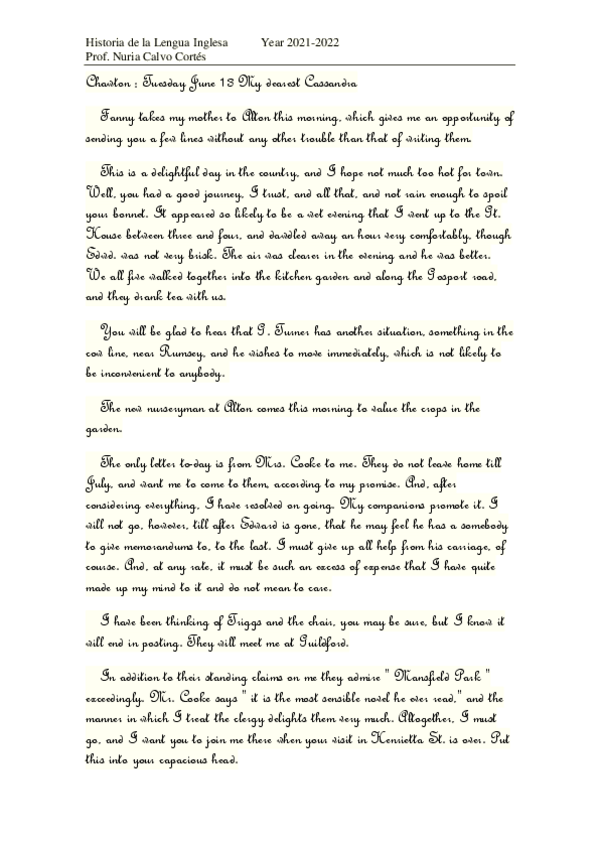 Historia de la Lengua Inglesa Year 2021-2022
Prof. Nuria Calvo Cortés
Chawton : Tuesday June 13 My dearest Cassandra
Fanny takes my mother to Alton this morning, which gives me an opportunity of
sending you a few lines without any other trouble than that of writing them.
This is a delightful day in the country, and I hope not much too hot for town.
Well, you had a good journey, I trust, and all that, and not rain enough to spoil
your bonnet. It appeared so likely to be a wet evening that I went up to the Gt.
House between three and four, and dawdled away an hour very comfortably, though
Edwd. was not very brisk. The air was clearer in the evening and he was better.
We all five walked together into the kitchen garden and along the Gosport road,
and they drank tea with us.
You will be glad to hear that G. Turner has another situation, something in the
cow line, near Rumsey, and he wishes to move immediately, which is not likely to
be inconvenient to anybody.
The new nurseryman at Alton comes this morning to value the crops in the
garden.
The only letter to-day is from Mrs. Cooke to me. They do not leave home till
July, and want me to come to them, according to my promise. And, after
considering everything, I have resolved on going. My companions promote it. I
will not go, however, till after Edward is gone, that he may feel he has a somebody
to give memorandums to, to the last. I must give up all help from his carriage, of
course. And, at any rate, it must be such an excess of expense that I have quite
made up my mind to it and do not mean to care.
I have been thinking of Triggs and the chair, you may be sure, but I know it
will end in posting. They will meet me at Guildford.
In addition to their standing claims on me they admire " Mansfield Park "
exceedingly. Mr. Cooke says " it is the most sensible novel he ever read," and the
manner in which I treat the clergy delights them very much. Altogether, I must
go, and I want you to join me there when your visit in Henrietta St. is over. Put
this into your capacious head.